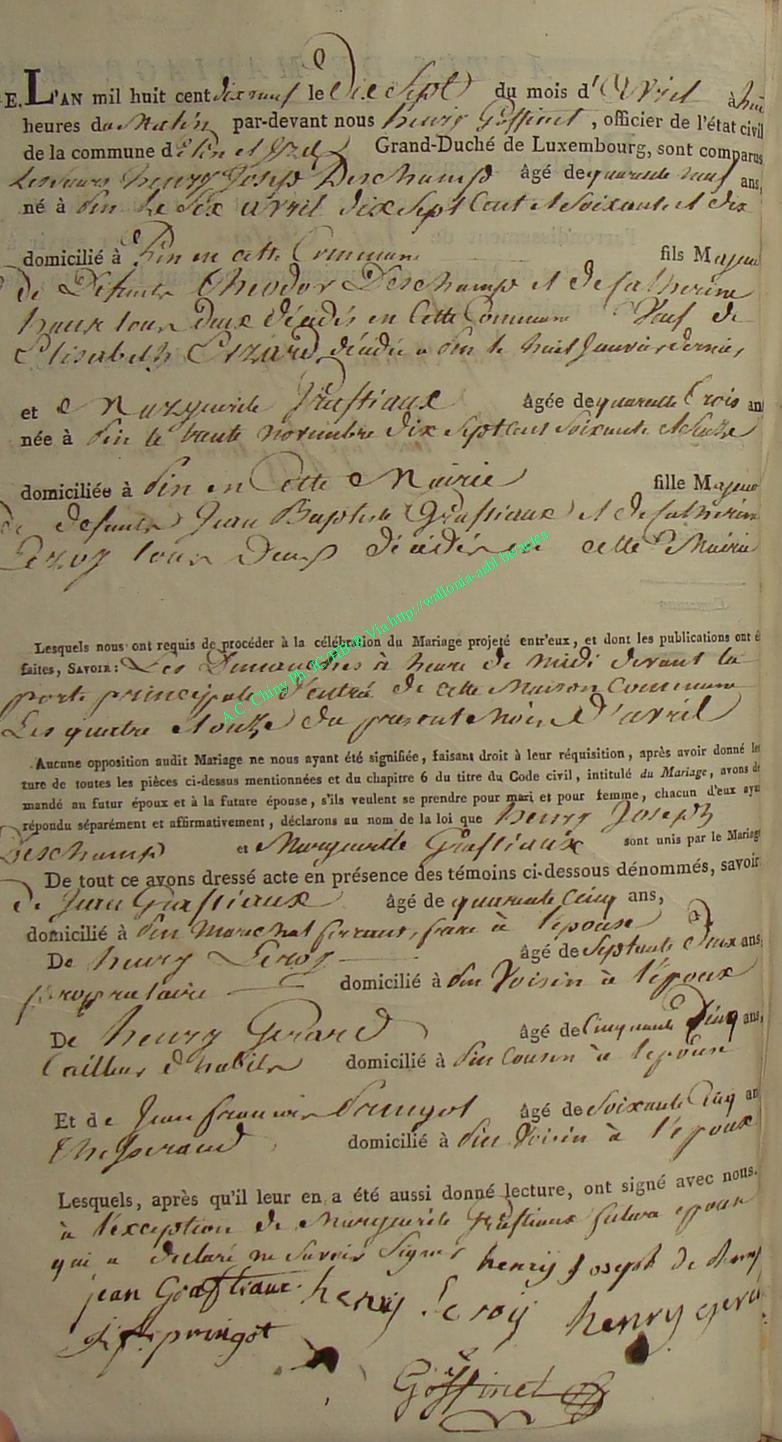 E. L'AN mil huit cent dix neuf le Dix Sept du mois d'Avril à huit
heures du Matin par-devant nous henry Goffinet, officier de l'état civil
de la commune d'Pin et Izel Grand-Duché de Luxembourg, sont comparus
henry Joseph Deschamps âgé de quarante neuf ans,
né à Pin le Six avril dix Sept Cent et Soixante et dix
domicilié à Pin en cette Commune fils Majeur
de Defunts Theodor Deschamps et de Catherine
tous deux décédés en Cette Commune Veuf de
Elisabeth décédée a Pin le huit Janvier dernier
et Marguerite Graftiaux âgée de quarante trois an
née à Pin le trente novembre dix Sept Cent Soixante et
domiciliée à Pin en Cette Mairie fille Majeure
de defunts Jean Baptiste Graftiaux et de Catherine
Leroy tous Deux décédés en cette Mairie
A.C. Chiny Ph. IC/FHBR Via http://wallonia-asbl.be/actes
Lesquels nous ont requis de procéder à la célébration du Mariage projeté entr'eux, et dont les publications ont é
faites, SAVOIR: Les Dimanches à heure de midi devant la
porte principale d'entré de cette Maison Commune
Les quatre et onze du present Mois d'avril
Aucune opposition audit Mariage ne nous ayant été signifiée, faisant droit à leur réquisition, après avoir donné lec
ture de toutes les pièces ci-dessus mentionnées et du chapitre 6 du titre du Code civil, intitulé du Mariage, avons de
mandé au futur époux et à la future épouse, s'ils veulent se prendre pour mari et pour femme, chacun d'eux aya
répondu séparément et affirmativement, déclarons au nom de la loi que henry Joseph
Deschamps et Marguerite Graftiaux sont unis par le Mariage
De tout ce avons dressé acte en présence des témoins ci-dessous dénommés, savoir
de Jean Graftiaux âgé de quarante Cinq ans,
domicilié à Pin Marechal ferrant, frere à l'epouse
De henry Leroy âgé de Septante Deux ans
propriétaire domicilié à Pin Voisin à l'époux
De henry Gerard âgé de Cinquante Cinq ans,
tailleur d'habits domicilié à Pin Cousin à l'epouse
Et de Jean francois Pringot âgé de Soixante Cinq an
tisserand domicilié à Pin Voisin à l'époux
Lesquels, après qu'il leur en a été aussi donné lecture, ont signé avec nous.
à l'exception de Marguerite Graftiaux future epouse
qui a declaré ne Savoir Signer henry Joseph de Champ
jean Graftiaux henry Leroy henry gera
j f pringot
Goffinet